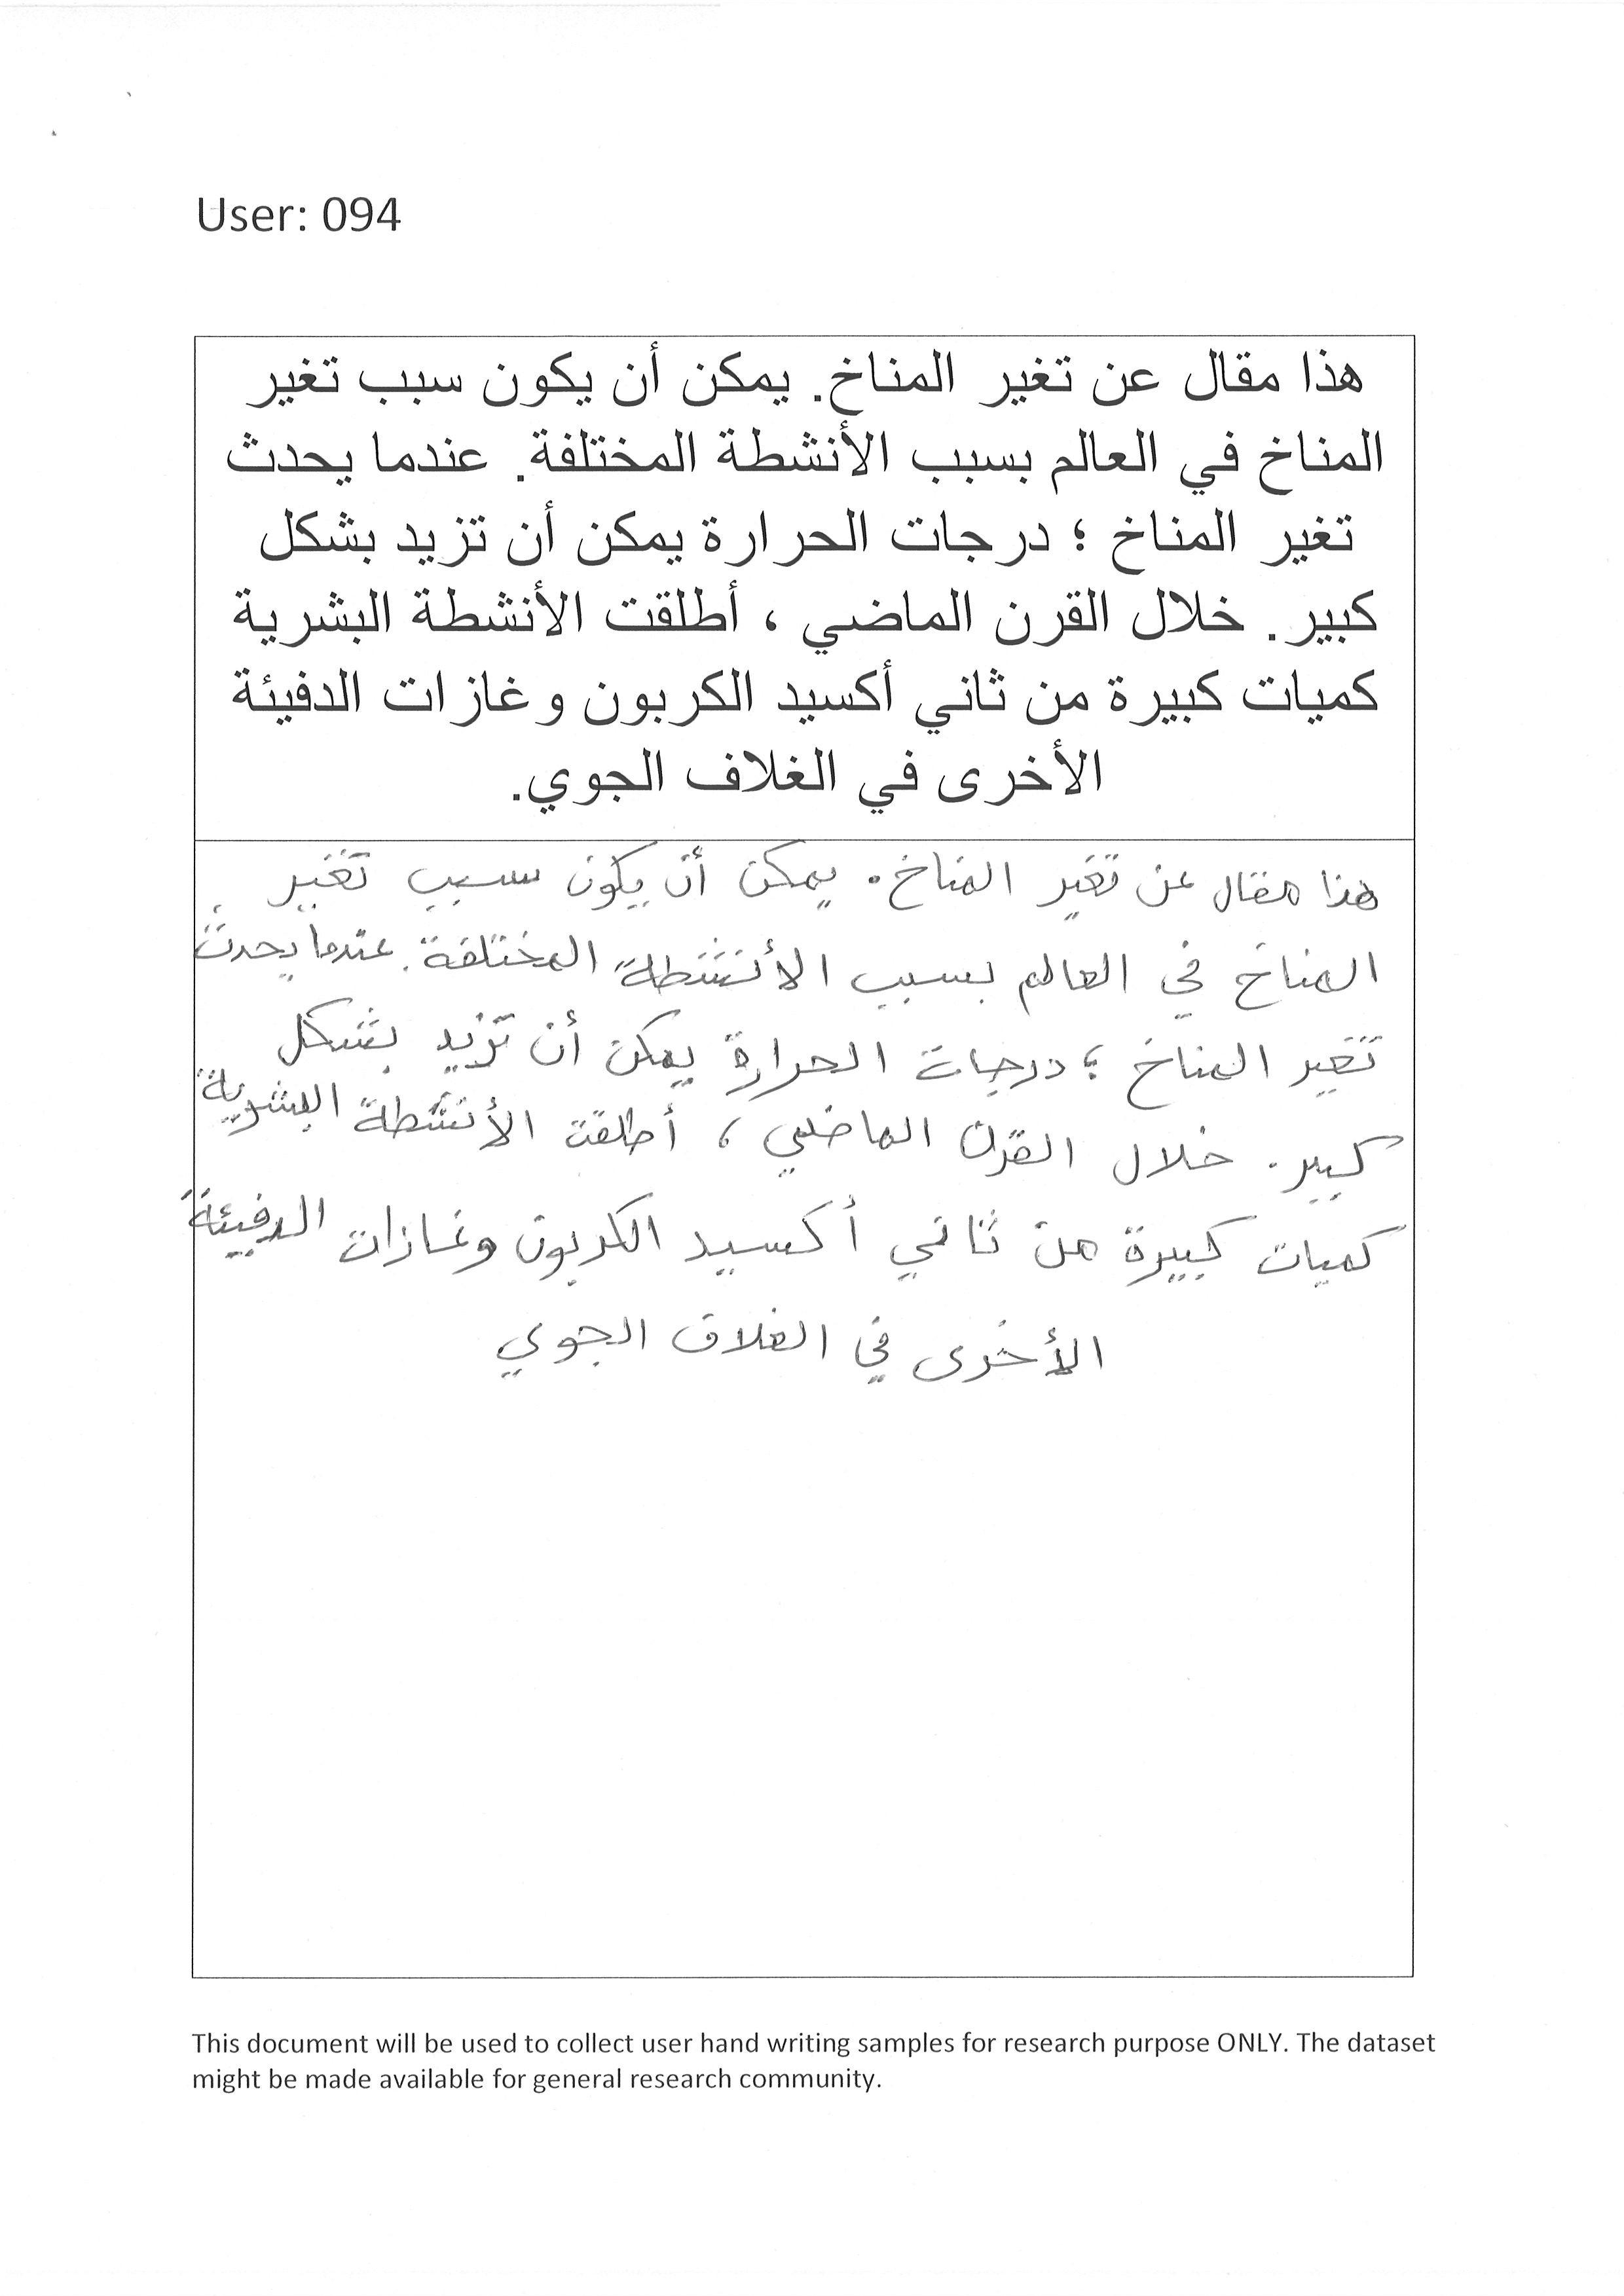 User: 094
هذا مقال عن تغير المناخ. يمكن أن يكون سبب تغير
المناخ في العالم بسبب الأنشطة المختلفة. عندما يحدث
تغير المناخ ؛ درجات الحرارة يمكن أن تزيد بشكل
كبير. خلال القرن الماضي ، أطلقت الأنشطة البشرية
كميات كبيرة من ثاني أكسيد الكربون وغازات الدفيئة
الأخرى في الغلاف الجوي.
هذا مقال عن تغير المناخ. يمكن أن يكون سبب تغير
المناخ في العالم بسبب الأنشطة المختلفة. عندما يحدث
تغير المناخ ؛ درجات الحرارة يمكن أن تزيد بشكل
كبير. خلال القرن الماضي ، أطلقت الأنشطة البشرية
كميات كبيرة من ثاني أكسيد الكربون وغازات الدفيئة
الأخرى في الغلاف الجوي
This document will be used to collect user hand writing samples for research purpose ONLY. The dataset
might be made available for general research community.